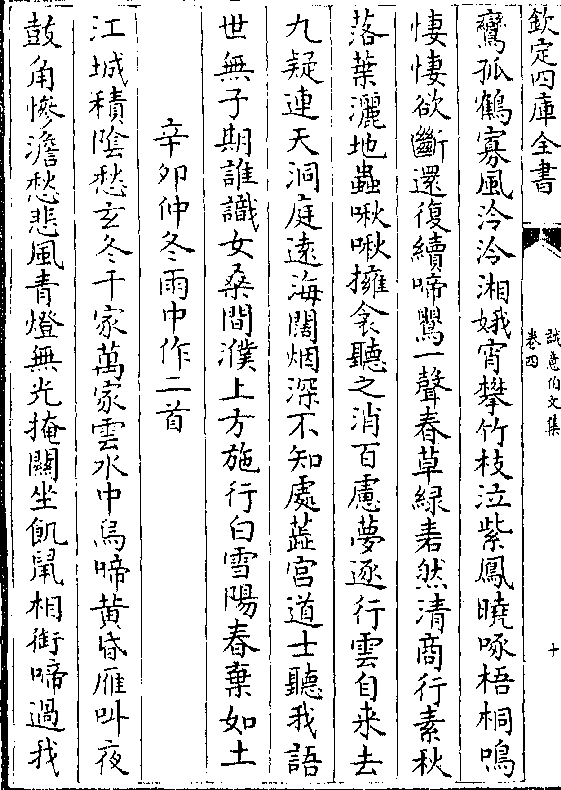 欽定四庫全書
誠意伯文集
卷四
十
鸞孤鶴寡風泠泠湘娥宵攀竹枝泣紫鳳曉啄梧桐鳴
悽悽欲斷還復續啼鸎一聲春草綠砉然清商行素秋
落葉灑地蟲啾啾擁衾聽之消百慮夢逐行雲自来去
九疑連天洞庭遠海闊烟深不知處蘂宫道士聽我語
世無子期誰識女桑間濮上方施行白雪陽春棄如土
辛卯仲冬雨中作二首
江城積陰愁玄冬千家萬家雲水中烏啼黄昏雁叫夜
鼓角慘澹愁悲風青燈無光掩關坐飢鼠相銜啼過我